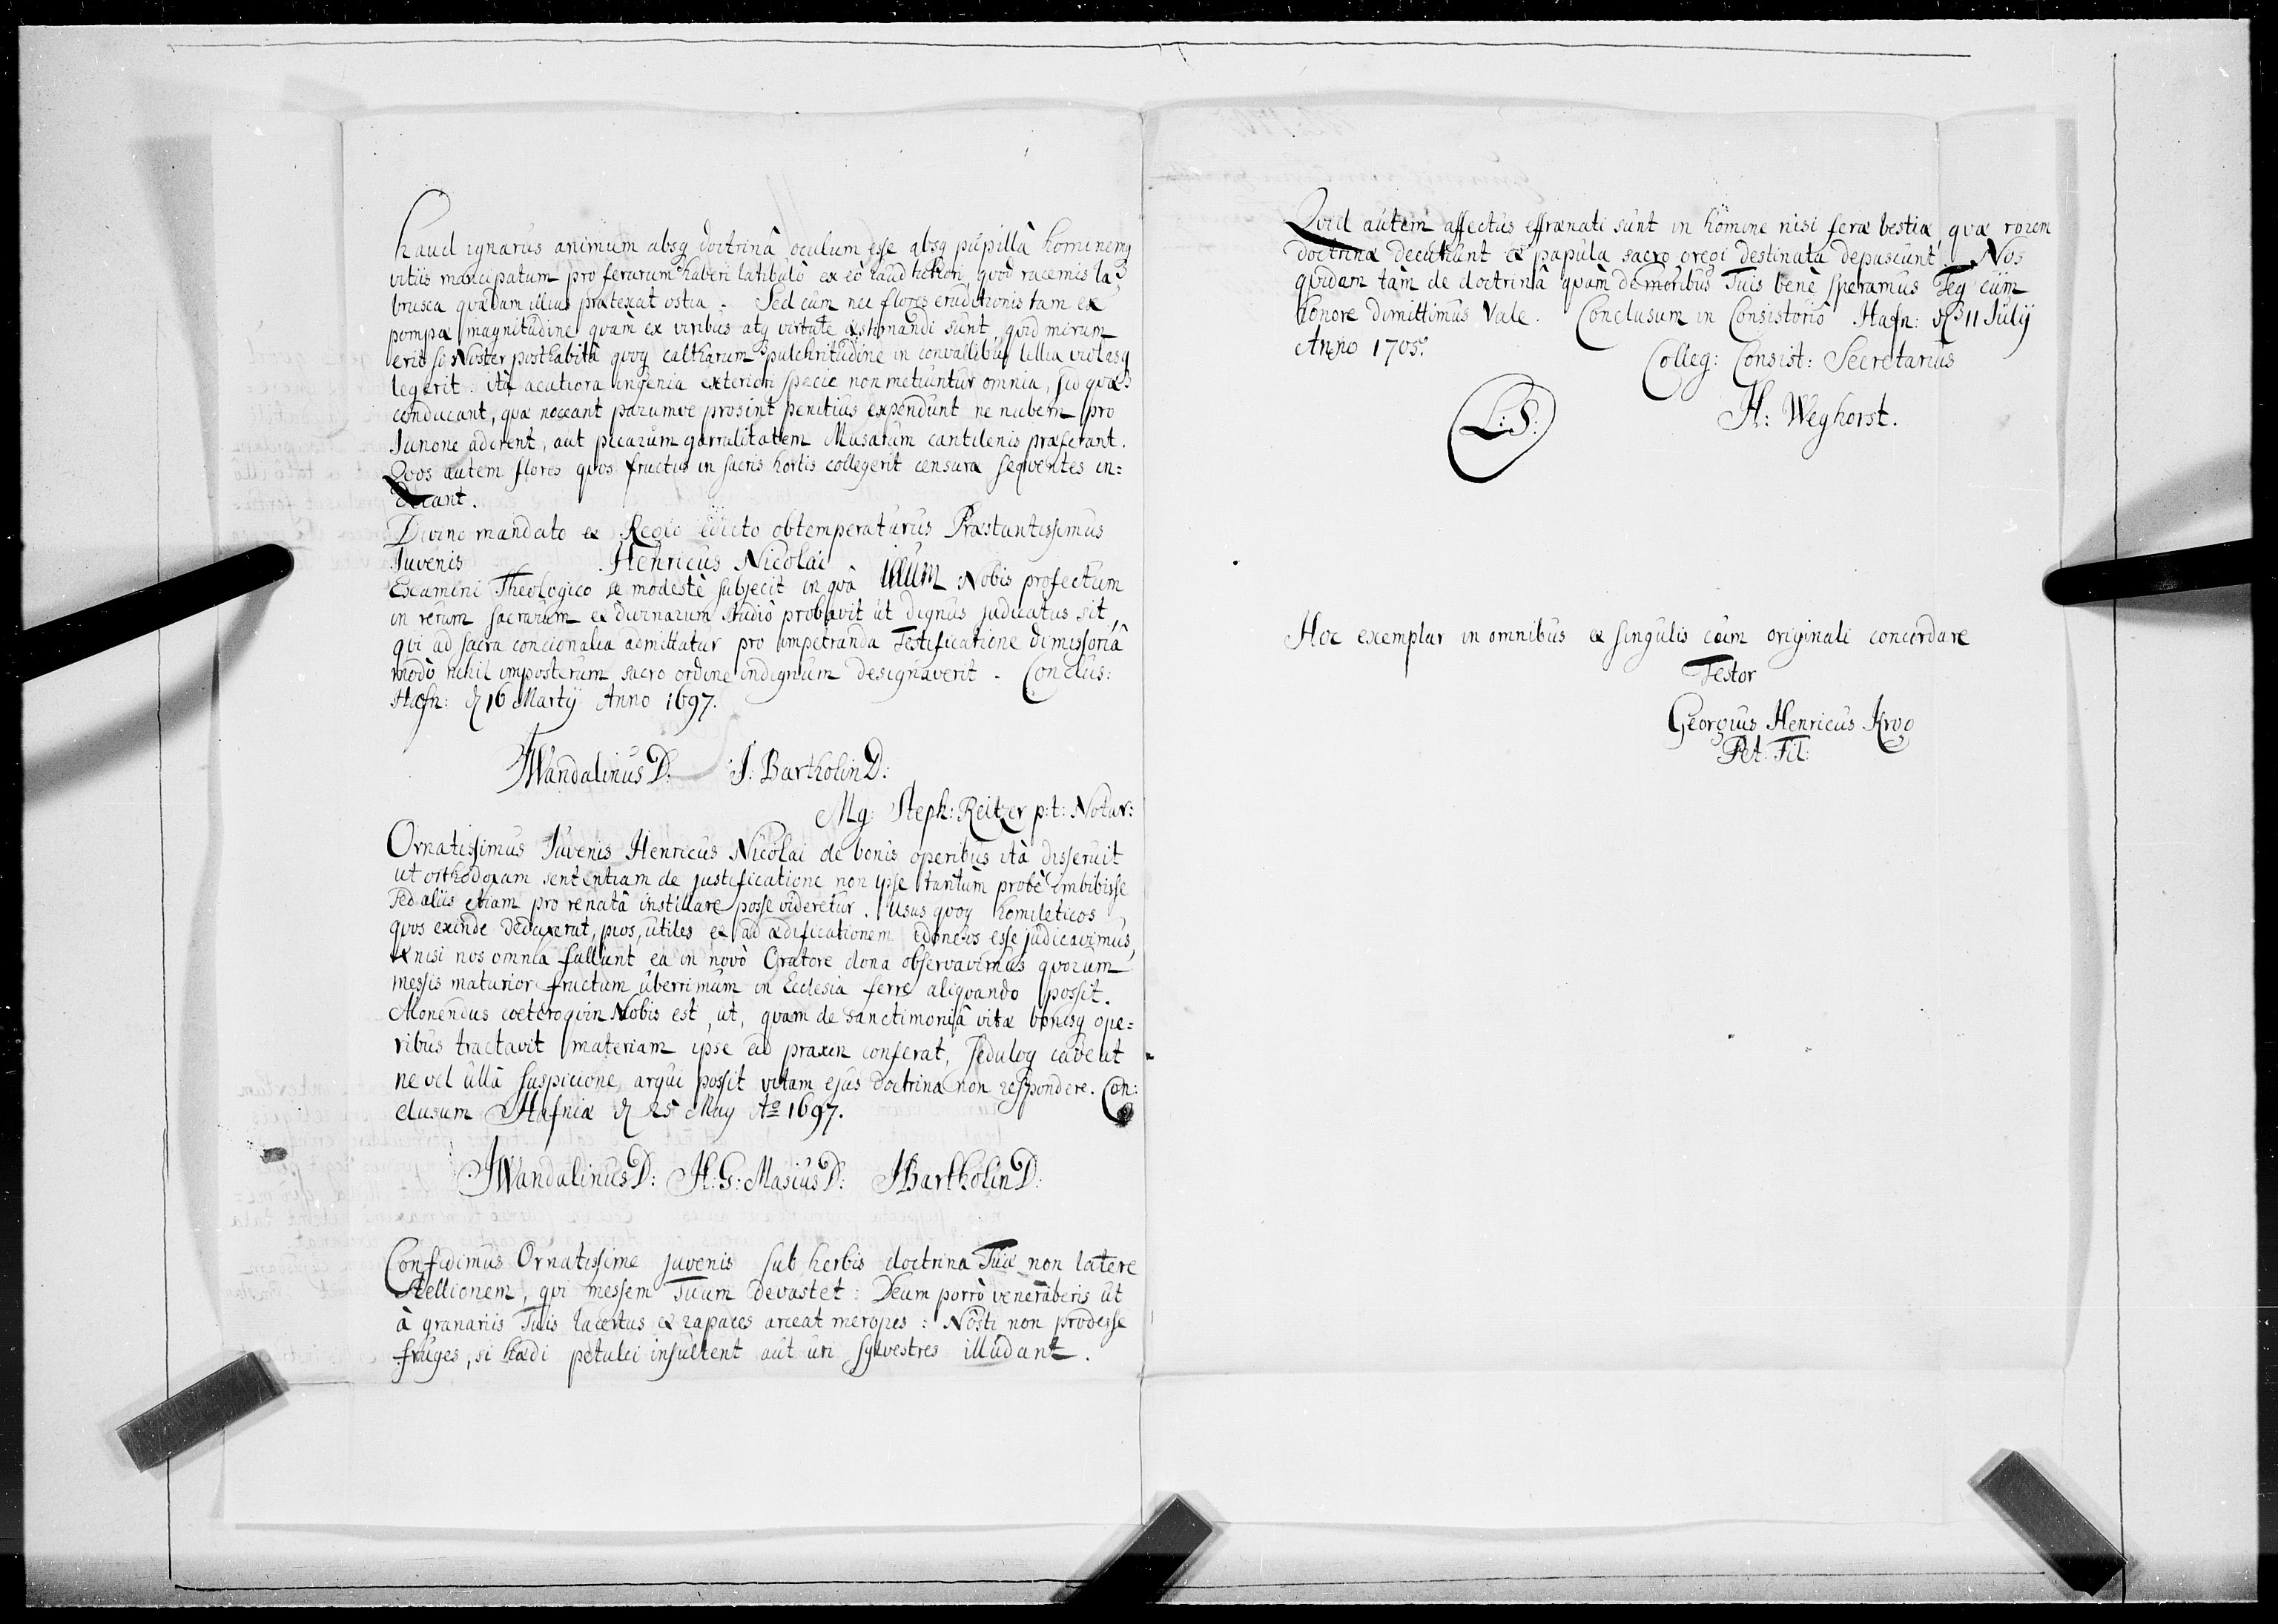 haud ignarus animum absq doctrinâ oculum esse absq pupillâ hominemq
vitiis mancipatum pro ferarum haberi latibulô ex eô haud meliori, quod racemis la
brusca quædam illius prætexat ostia. Sed cum nec flores eruditionis tam ex
pompæ magnitudine quàm ex viribus atq virtute æstimandi sunt, quid mirum
erit si Noster posthabitâ quoq caltharum pulchritudine in convallibus lillia violasq
legerit. ità acutiora ingenia exteriori specie non metiuntur omnia, sed quæ
conducant, quæ noceant parumve prosint penitius expendunt ne nubem pro
Junone adorent, aut picarum garrulitatem Musarum cantilenis præferant.
Qvos autem flores qvos fructus in sacris hortis collegerit censuræ seqventes in=
dicant.
Divino mandato & Regio edicto obtemperaturus Præstantissimus
Juvenis Henricus Nicolai
Examini Theologico se modestè subjecit in qvô illum Nobis profectum
in rerum sacrarum & divinarum studiô probavit ut dignus judicatus sit,
qvi ad sacra concionalia admittatur pro impetranda Testificatione dimissoriâ
modò nihil imposterum sacro ordine indignum designaverit. Conclus:
Hafn: d 16 Martij Anno 1697.
JWandalinus D: J: Bartholin D:
Mg: Steph: Reitzer p:t: Notar:
Ornatissimus Juvenis Henricus Nicolai de bonis operibus ità disseruit
ut orthodoxam sententiam de justificatione non ipse tantùm probè imbibisse
sed aliis etiam pro renatâ instillare posse videretur. Usus qvoq homileticos
qvos exinde deduxerat, pios, utiles & ad ædificationem idoneos esse judicavimus,
& nisi nos omnia fallunt ea in novô Oratore dona observavimus qvorum
messis maturior fructum uberrimum in Ecclesia ferre aliqvando possit.
Monendus coeteroqvin Nobis est, ut, qvam de sanctimoniâ vitæ bonisq ope=
ribus tractavit materiam ipse ad praxin conferat, seduloq caveat
ne vel ullâ suspicione argui possit vitam ejus doctrinæ non respondere. Con:
clusum Hafniæ d 25 May Aº 1697.
JWandalinus D: H: G: Masius D: JBartholin D:
Confidimus Ornatissime juvenis sub herbis doctrinæ Tuæ non latere
Stellionem, qvi messem Tuam devastet: Deum porrò veneraberis ut
à granariis Tuis lacertas & rapaces arceat meropes: Nosti non prodesse
fruges, si hædi petulci insultent aut uri sylvestres illudant.
Qvid autem affectus effrænati sunt in homine nisi feræ bestiæ, qvæ rorem
doctrinæ decutiunt & papula sacro gregi destinata depascunt. Nos
qvidam tàm de doctrinâ qvàm de moribus Tuis benè speramus Teq cùm
honore dimittimus Vale. Conclusum in Consistoriô Hafn: d 11 Julij
Anno 1705.
Colleg: Consist: Secretarius
H: Weghorst.
L: S:
Hoc exemplar in omnibus & singulis cum originali concordare
Testor
Georgius Henricus Krog
Pet: Fil: